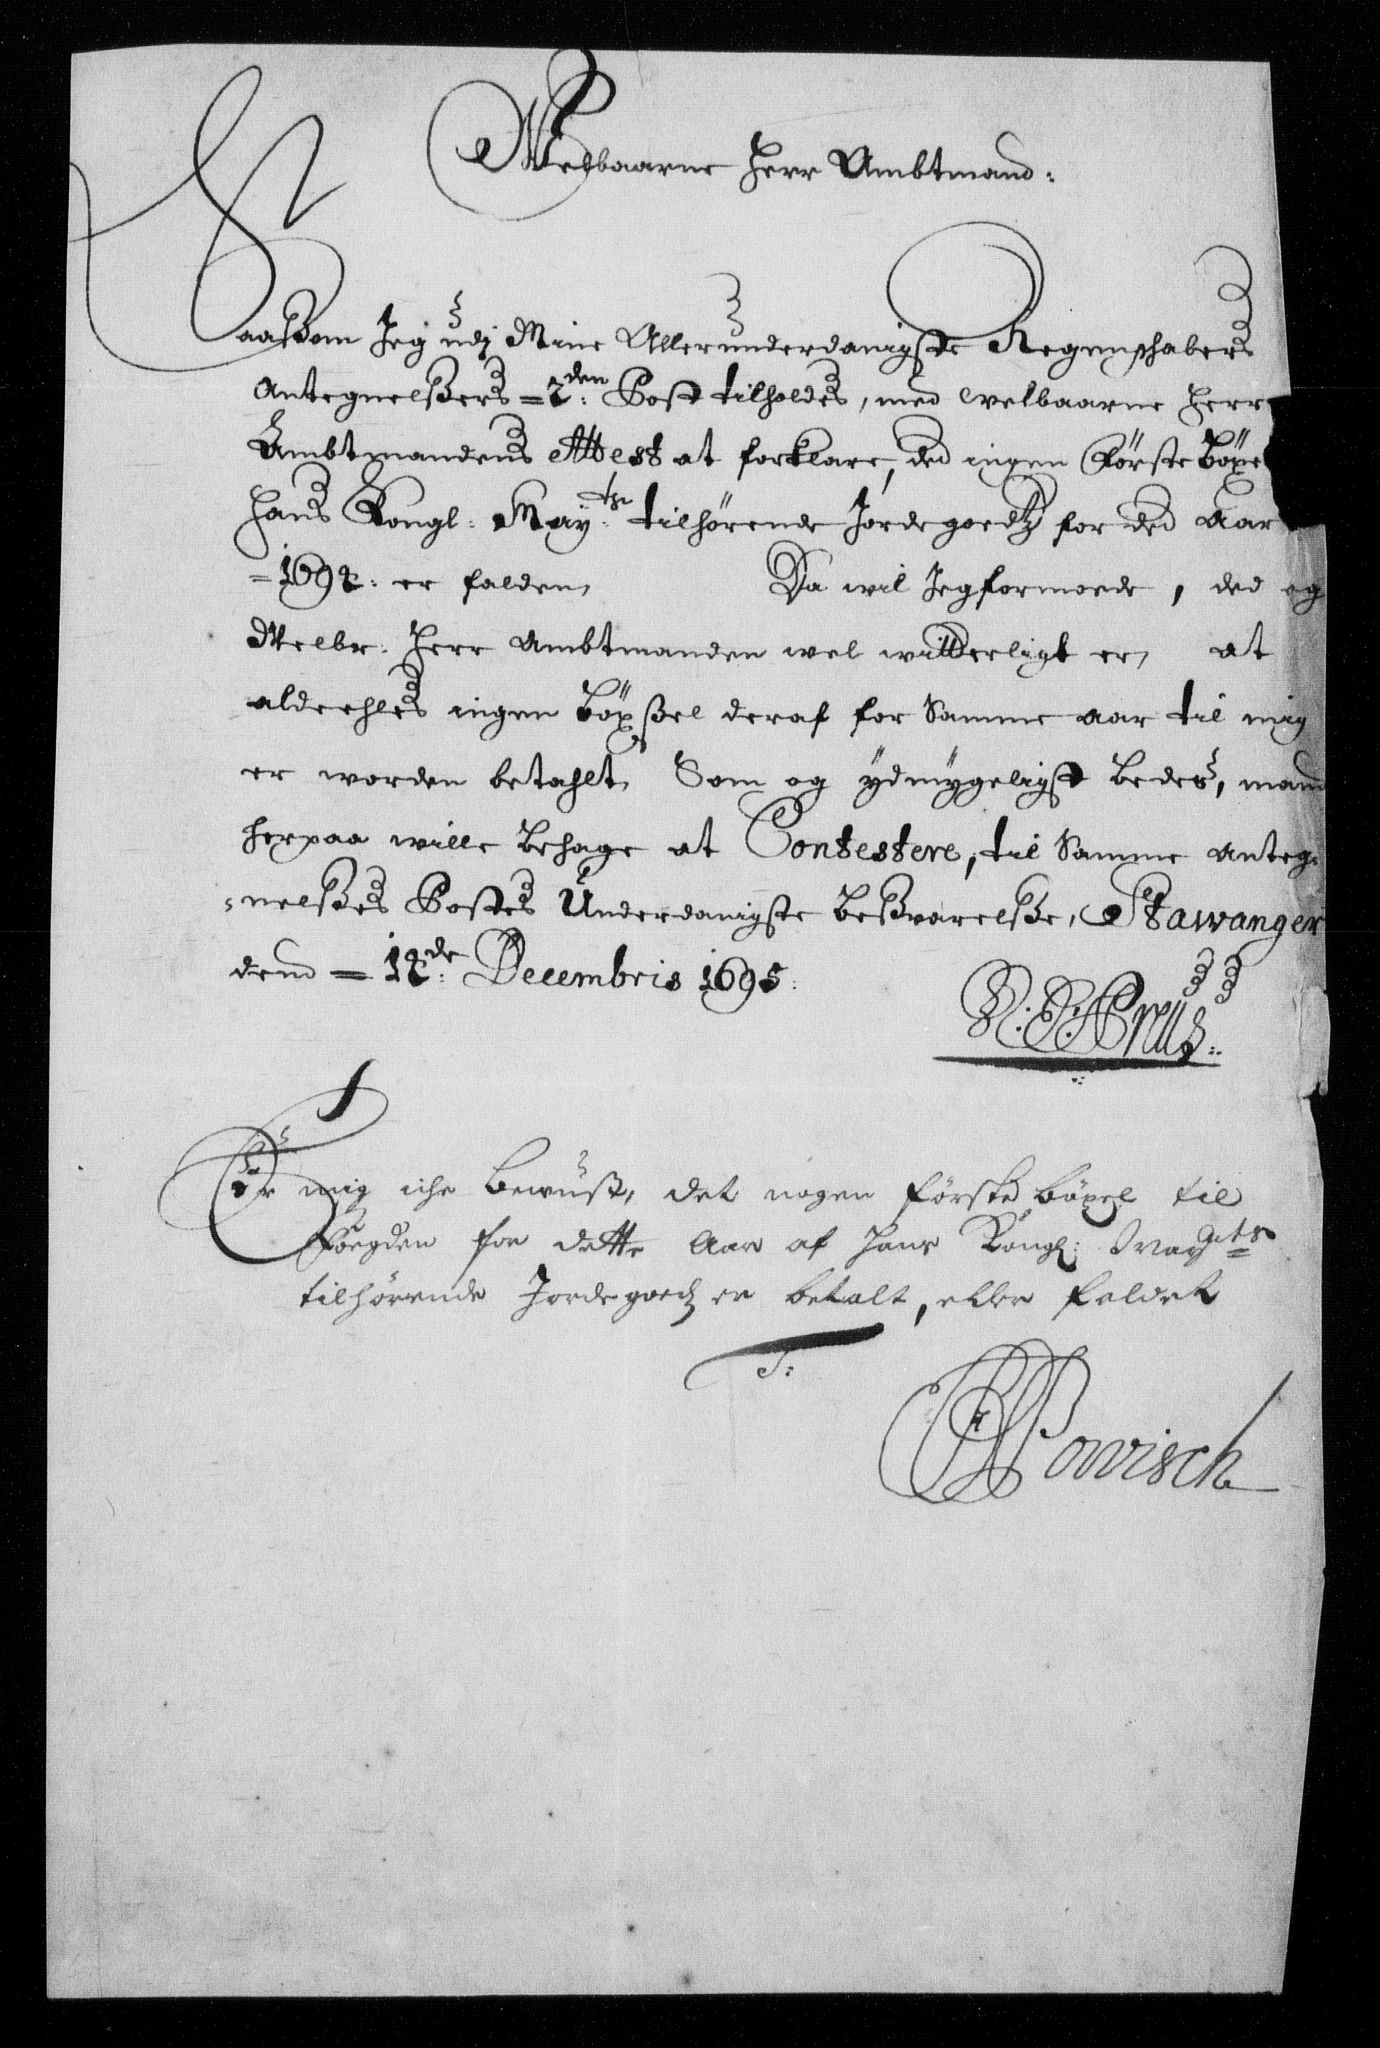 Welbaarne Herr Ambtmand:
Saasom Jeg udj Mine Allerunderdanigste Regenschabers
Antegnelsers = 2den: Post tilholdes, med welbaarne Herr
Ambtmandens Attest at forklare, ded ingen Förste böxel
Hans Kongl: Mayttz: tilhörende Jordegoedtz for ded Aar
= 1692: er falden, Da wil Jeg formoede, ded og
Welbr: Herr Ambtmanden wel witterligt er, at
aldeehles ingen böxssel deraf for Samme aar til mig
er worden betahlt, Som og ydmygeligst bedes, mand
herpaa wille behage at Contestere, til Samme anteg-
nelsses Postes Underdanigste besswarelsse, Stawanger
dend = 12de: Decembris 1695:
Er mig iche bewust, det nogen förste böxel til
Foegden for dette Aar af Hans Kongl: Mayts
tilhörende Jordegoedz er betalt, eller faldet
Powisch